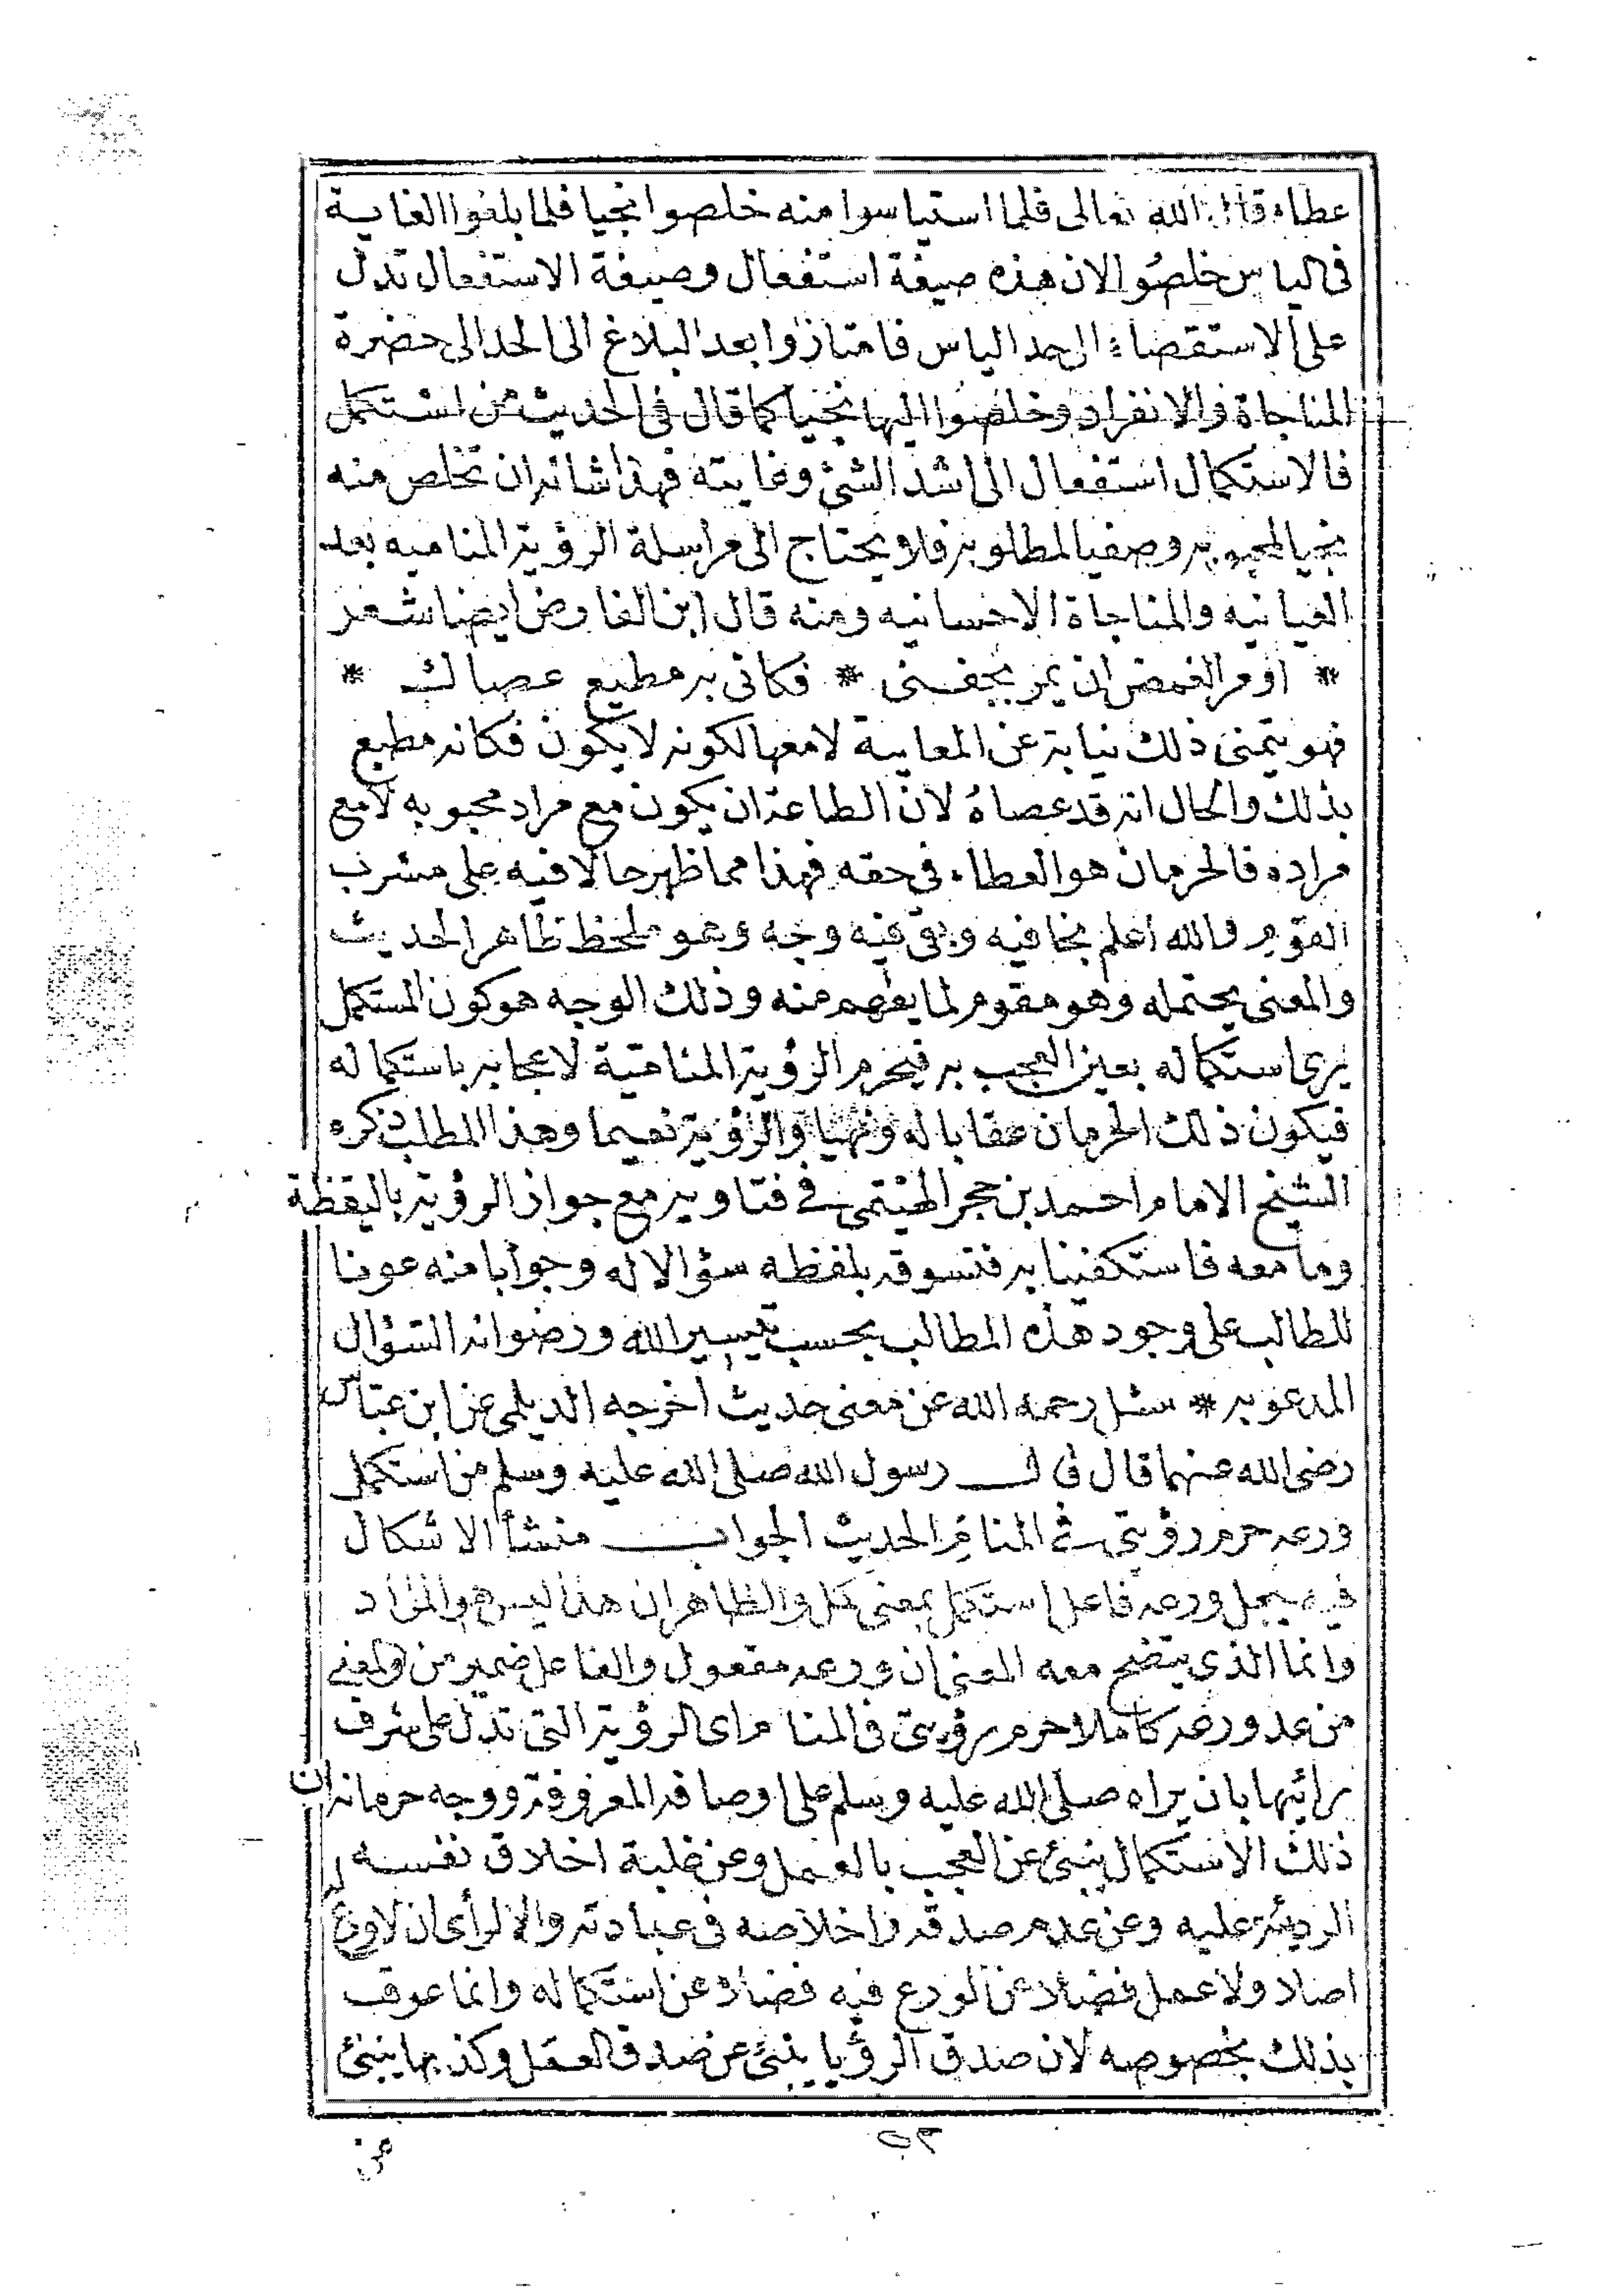 عطاء قال الله تعالى فلما استياسوا منه خلصوا نجيا فلما بلغوا الغاية
في الياس خلصوا لان هذه صيغة استفعال وصيغة الاستفعال تدل
على الاستقصاء الى حد الياس فامتازوا بعد البلاغ الى الحد الى حضرة
المناجاة والانفراد وخلصوا اليها نجيا كما قال في الحديث من استكمل
فالاستكمال استفعال الى اشد الشئ وغايته فهذا شانه ان تخلص منه
نجيا لمحبوبه وصفيا لمطلوبه فلا يحتاج الى مراسلة الرؤية المناميه بعد
العيانيه والمناجاة الاحسانيه ومنه قال ابن الفارض ايضا شعر
* اوم الغمض ان يمر بجفني * فكاني به مطيع عصاك *
فهو يتمنى ذلك نيابة عن المعاينة لا معها لكونه لا يكون فكانه مطيع
بذلك والحال انه قد عصاه لان الطاعة ان يكون مع مراد محبوبه لا مع
مراده فالحرمان هو العطاء في حقه فهذا مما ظهر حالا فيه على مشرب
القوم والله اعلم بخافيه وبقي فيه وجه وهو ملحظ ظاهر الحديث
والمعنى يحتمله وهو مقوم لما يفهم منه وذلك الوجه هو كون المستكمل
يرى استكماله بعين العجب به فيحرم الرؤية المنامية لاعجابه باستكماله
فيكون ذلك الحرمان عقابا له ونهيا والرؤية نعيما وهذا المطلب ذكره
الشيخ الامام احمد بن حجر الهيتمي في فتاويه مع جواز الرؤية باليقظة
وما معه فاستكفينا به فنسوقه بلفظه سؤالا له وجوابا منه عونا
للطالب على وجود هذه المطالب بحسب تيسير الله ورضوانه السؤال
المدعو به * سئل رحمه الله عن معنى حديث اخرجه الديلمي عن ابن عباس
رضي الله عنهما قال قال رسول الله صلى الله عليه وسلم من استكمل
ورعه حرم رؤيتي في المنام الحديث الجواب منشأ الاشكال
فيه يجعل ورعه فاعل استكمل بمعنى كمل والظاهر ان هذا ليس هو المراد
وانما الذي يتضح معه المعنى ان ورعه مفعول والفاعل ضمير من والمعنى
من عد ورعه كاملا حرم رؤيتي في المنام اي الرؤية التي تدل على شرف
رائيها بان يراه صلى الله عليه وسلم على اوصافه المعروفة ووجه حرمانه ان
ذلك الاستكمال ينبئ عن العجب بالعمل وعن غلبة اخلاق نفسه
الرديئة عليه وعن عدم صدقه واخلاصه في عبادته والا لرأى ان لا ورع
اصلا ولا عمل فضلا عن الورع فيه فضلا عن استكماله وانما عوقب
بذلك بخصوصه لان صدق الرؤيا ينبئ عن صدق العمل وكذبها ينبئ
عن
٥٣